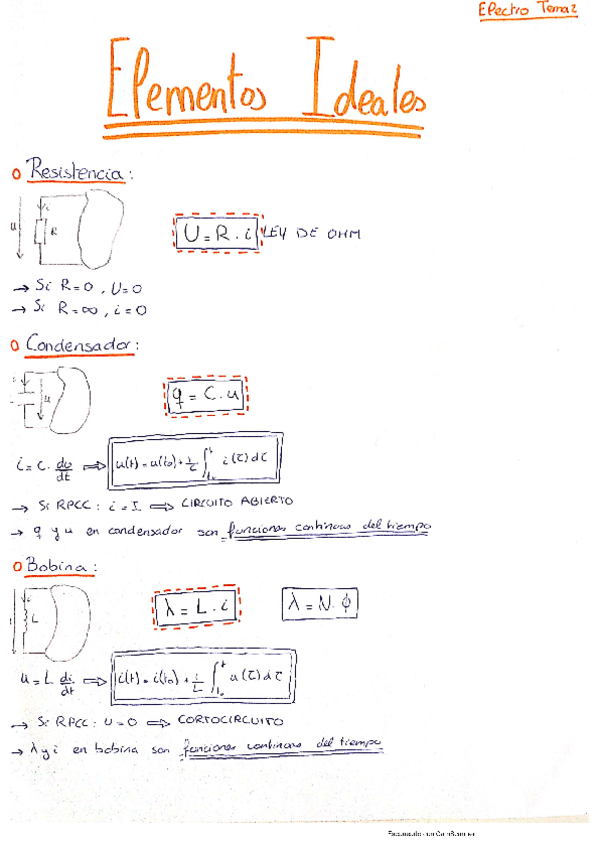 Electro Tema 2
Elementos Ideales
Resistencia:
u
i
R
U = R · i LEY DE OHM
→ Si R = 0, U = 0
→ Si R = ∞, i = 0
Condensador:
u
q = C · u
i = C · du/dt ⇒ u(t) = u(t₀) + 1/C ∫ₜ₀ᵗ i(τ) dτ
→ Si RPCC: i = I ⇒ CIRCUITO ABIERTO
→ q y u en condensador son funciones continuas del tiempo
Bobina:
i
L
λ = L · i
λ = N · ϕ
u = L di/dt ⇒ i(t) = i(t₀) + 1/L ∫ₜ₀ᵗ u(τ) dτ
→ Si RPCC: U = 0 ⇒ CORTOCIRCUITO
→ λ y i en bobina son funciones continuas del tiempo
Escaneado con CamScanner